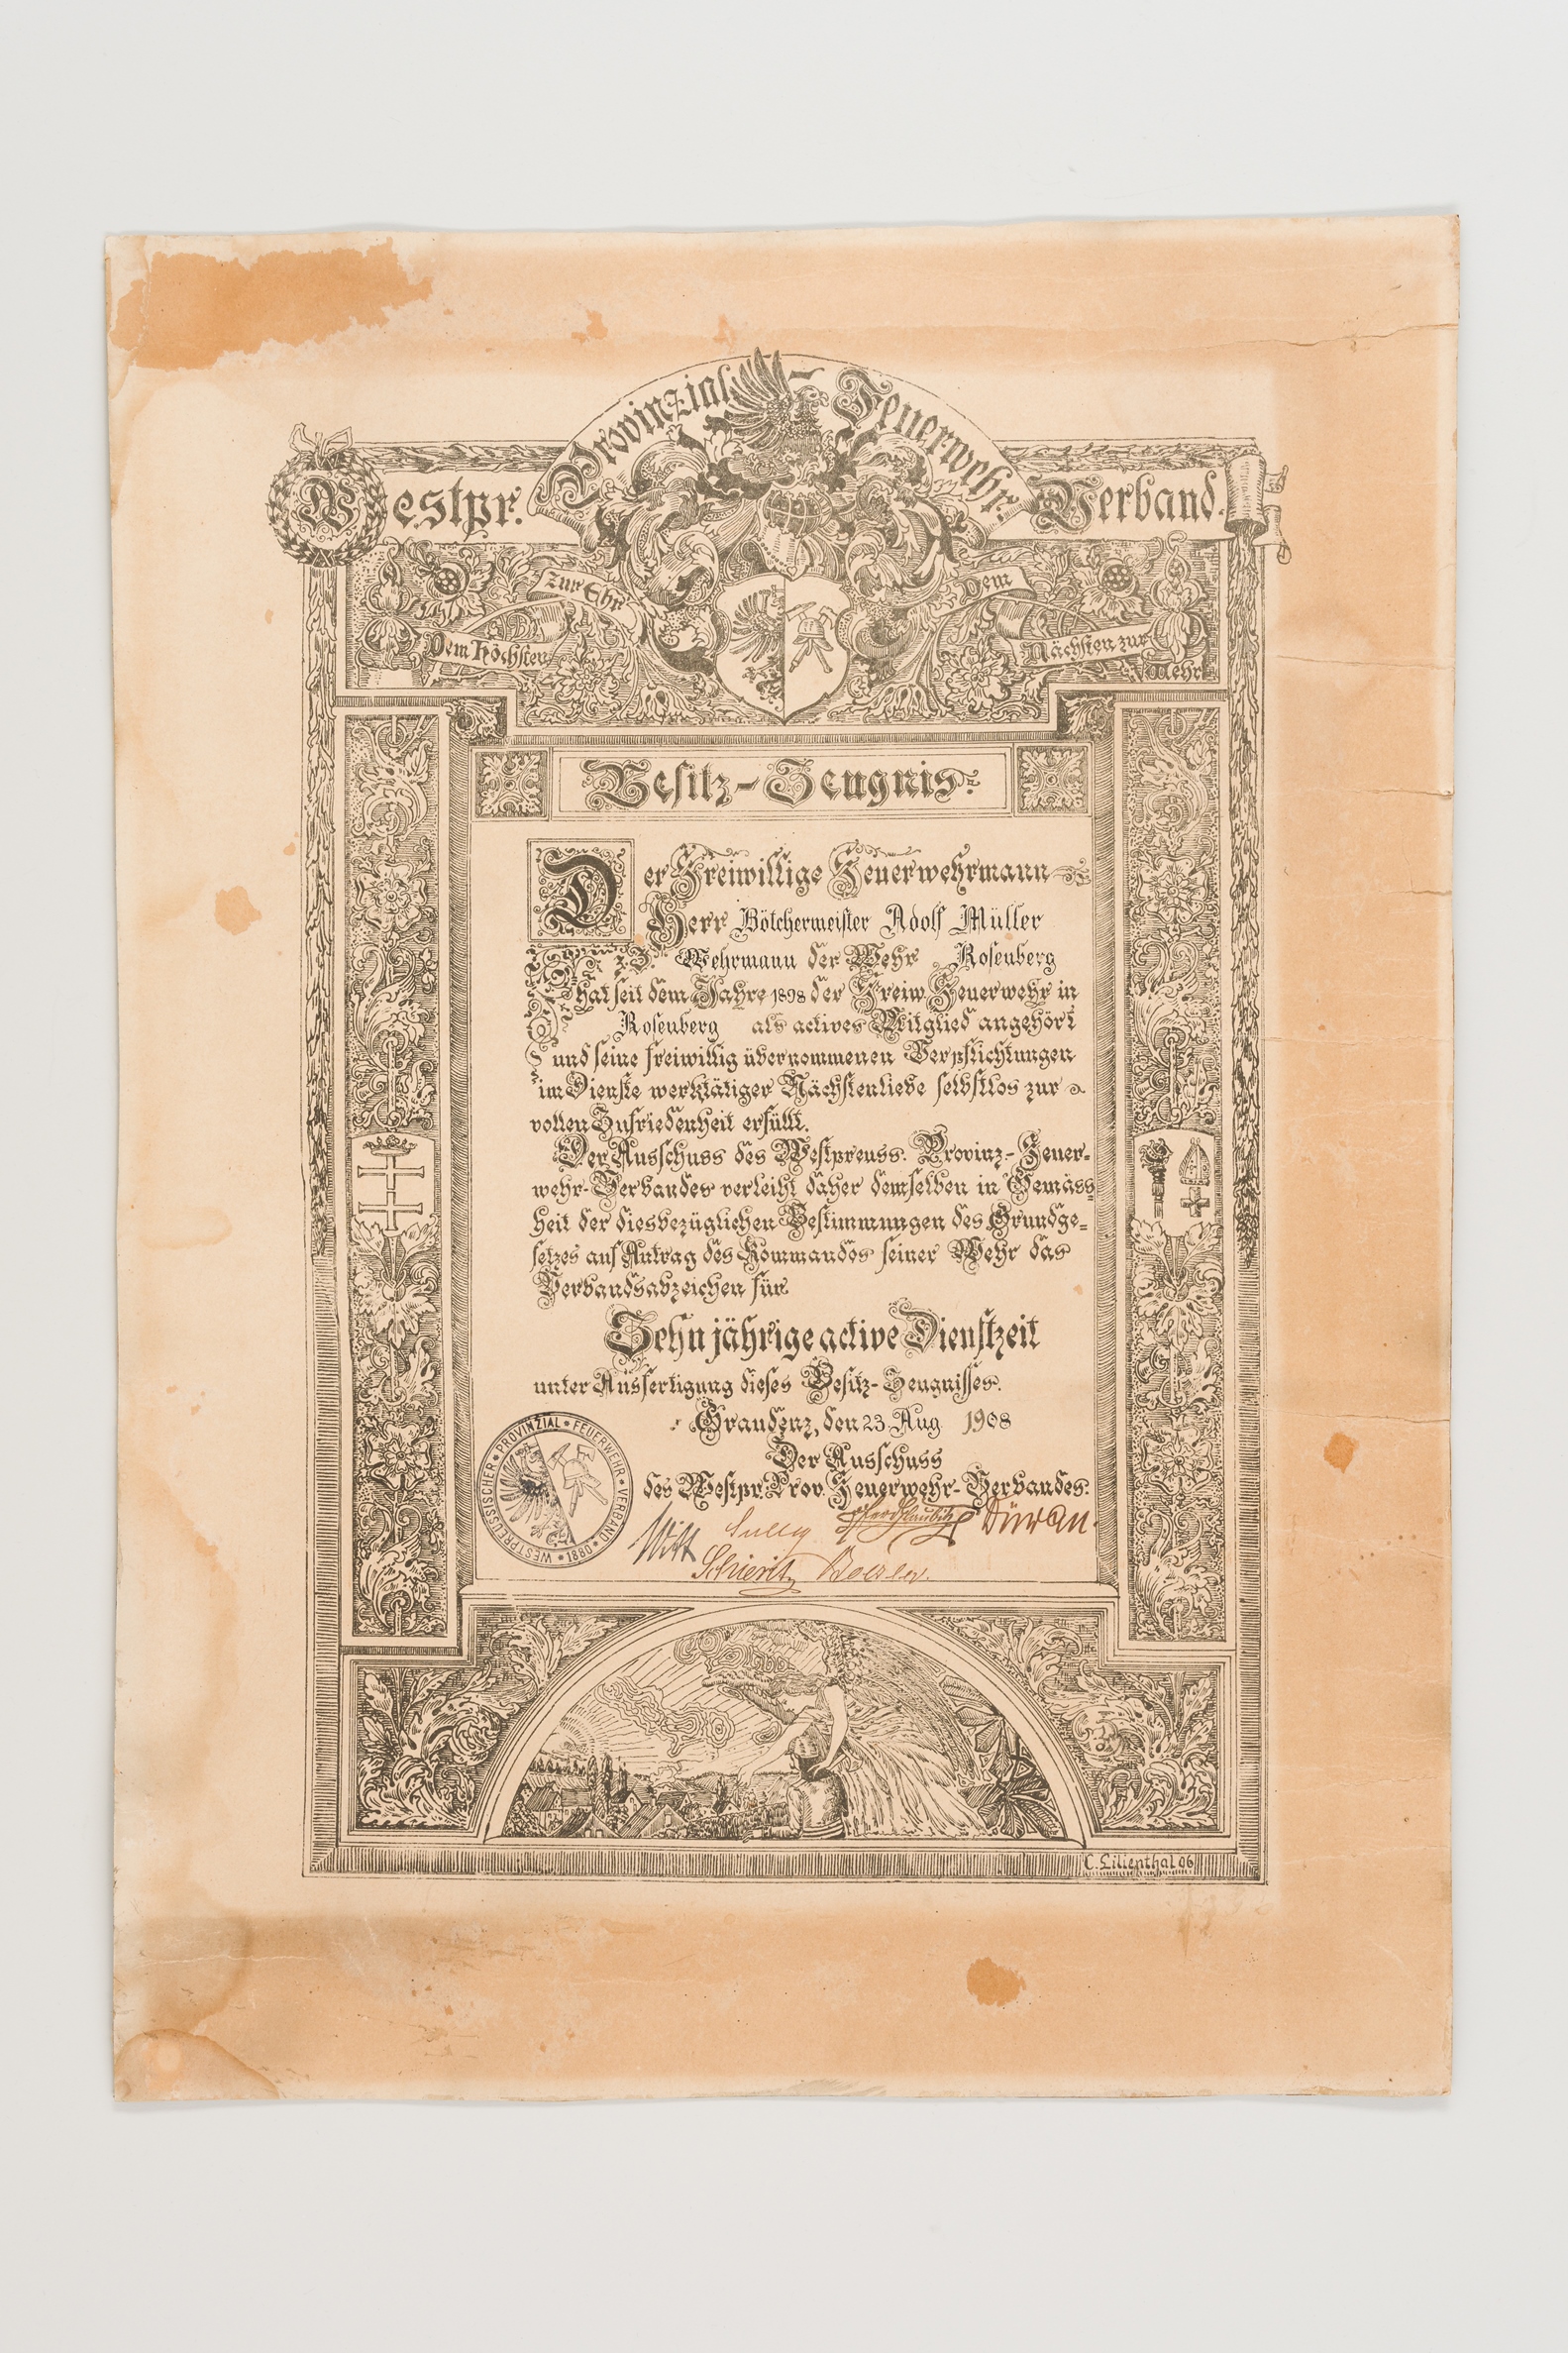 Westpr. Provinzial-Feuerwehr-Verband.
Dem Höchsten zur Ehr
Dem Nächsten zur Wehr
Besitz-Zeugnis
Der Freiwillige Feuerwehrmann
Herr Böttchermeister Adolf Müller
z. Z. Wehrmann der Wehr Rosenberg
hat seit dem Jahre 1898 der Freiw. Feuerwehr in
Rosenberg als actives Mitglied angehört
und seine freiwillig übernommenen Verpflichtungen
im Dienste werktätiger Nächstenliebe selbstlos zur
vollen Zufriedenheit erfüllt.
Der Ausschuss des Westpreuss. Provinz-Feuer-
wehr-Verbandes verleiht daher demselben in Gemäss-
heit der diesbezüglichen Bestimmungen des Grundge-
setzes auf Antrag des Kommandos seiner Wehr das
Verbandsabzeichen für
Zehnjährige active Dienstzeit
unter Ausfertigung dieses Besitz-Zeugnisses.
Graudenz, den 23. Aug. 1908
Der Ausschuss
des Westpr. Prov. Feuerwehr-Verbandes:
WESTPREUSSISCHER • PROVINZIAL • FEUERWEHR • VERBAND • 1880 •
Witt
C. Lilienthal 06